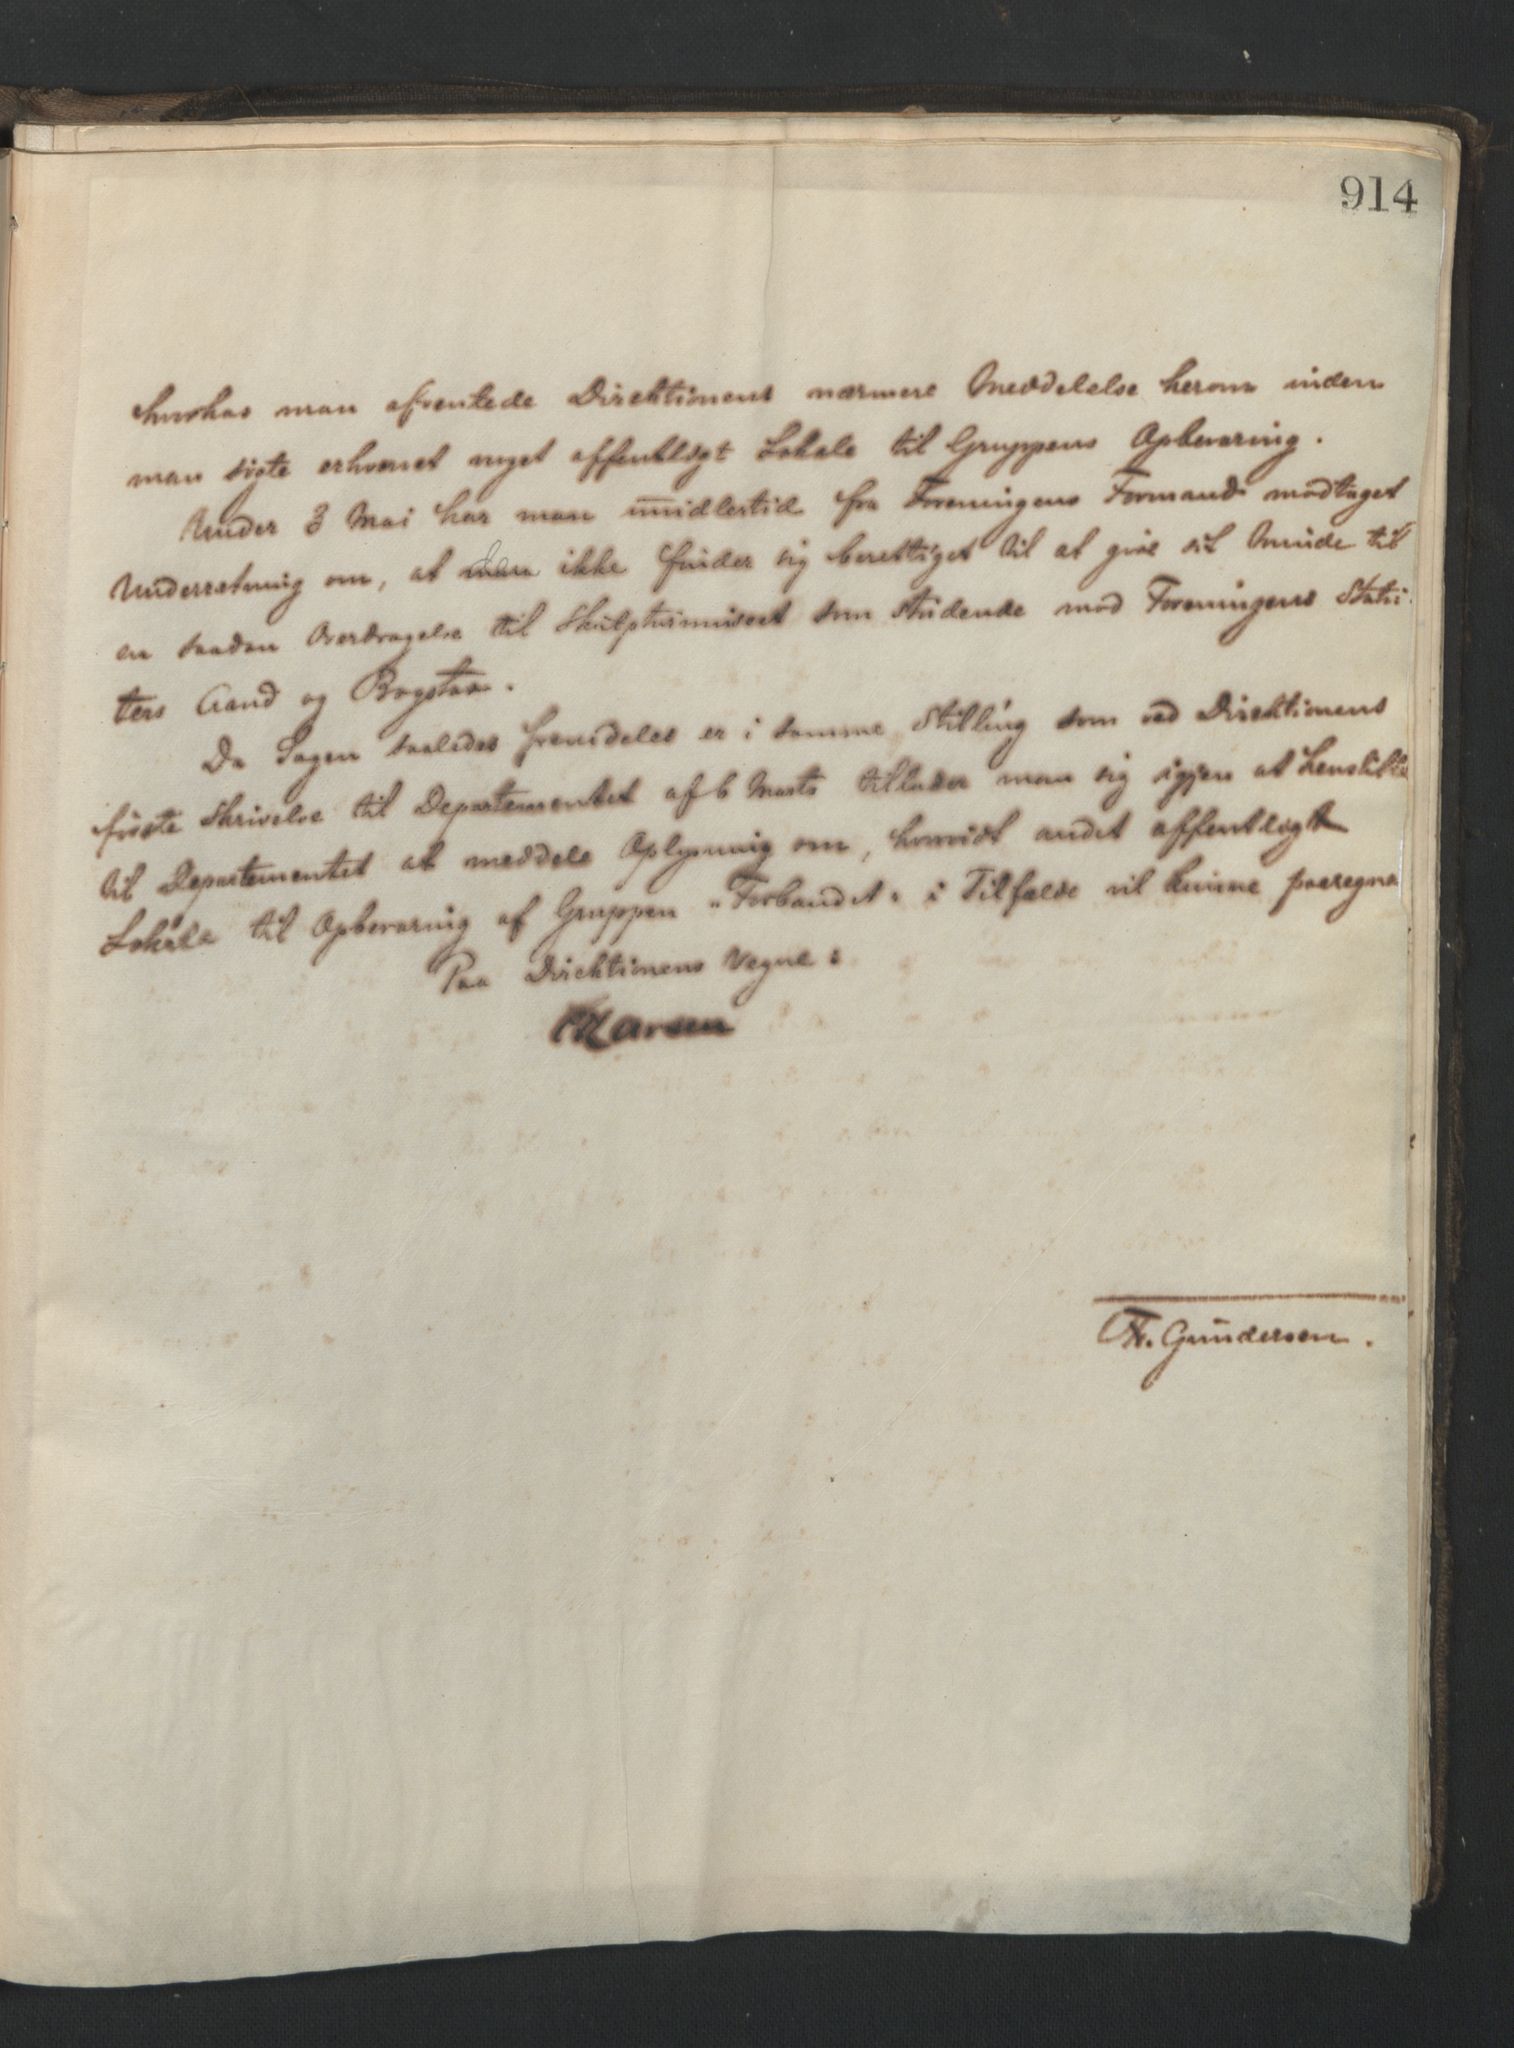 914
man afventede Direktionens nærmere Meddelelse herom inden
man sigte erhvervet noget offentligt Lokale til Gruppens Opbevaring.
Under 3 Mai har man imidlertid fra Foreningens Formand modtaget
Underretning om, at den ikke finder sig berettiget til at give sit Minde til
en saadan Overdragelse til Skulpturmuseet som stridende mod Foreningens Statu-
ters Aand og Bogstav.
Da Sagen saaledes fremdeles er i samme Stilling som ved Direktionens
første Skrivelse til Departementet af 6 Marts tillader man sig igjen at henstille
til Departementet at meddele Oplysning om, hvorvidt andet offentligt
Lokale til Opbevaring af Gruppen "Forbandet" i Tilfælde vil kunne paaregne
Paa Direktionens Vegne:
Larsen
Th. Gundersen.